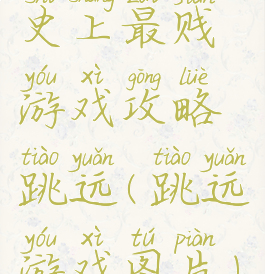 shǐ shàng zuì jiàn
史上最贱
yóu xì gōng lüè
游戏攻略
tiào yuǎn tiào yuǎn
跳远(跳远
yóu xì tú piàn
游戏图片)